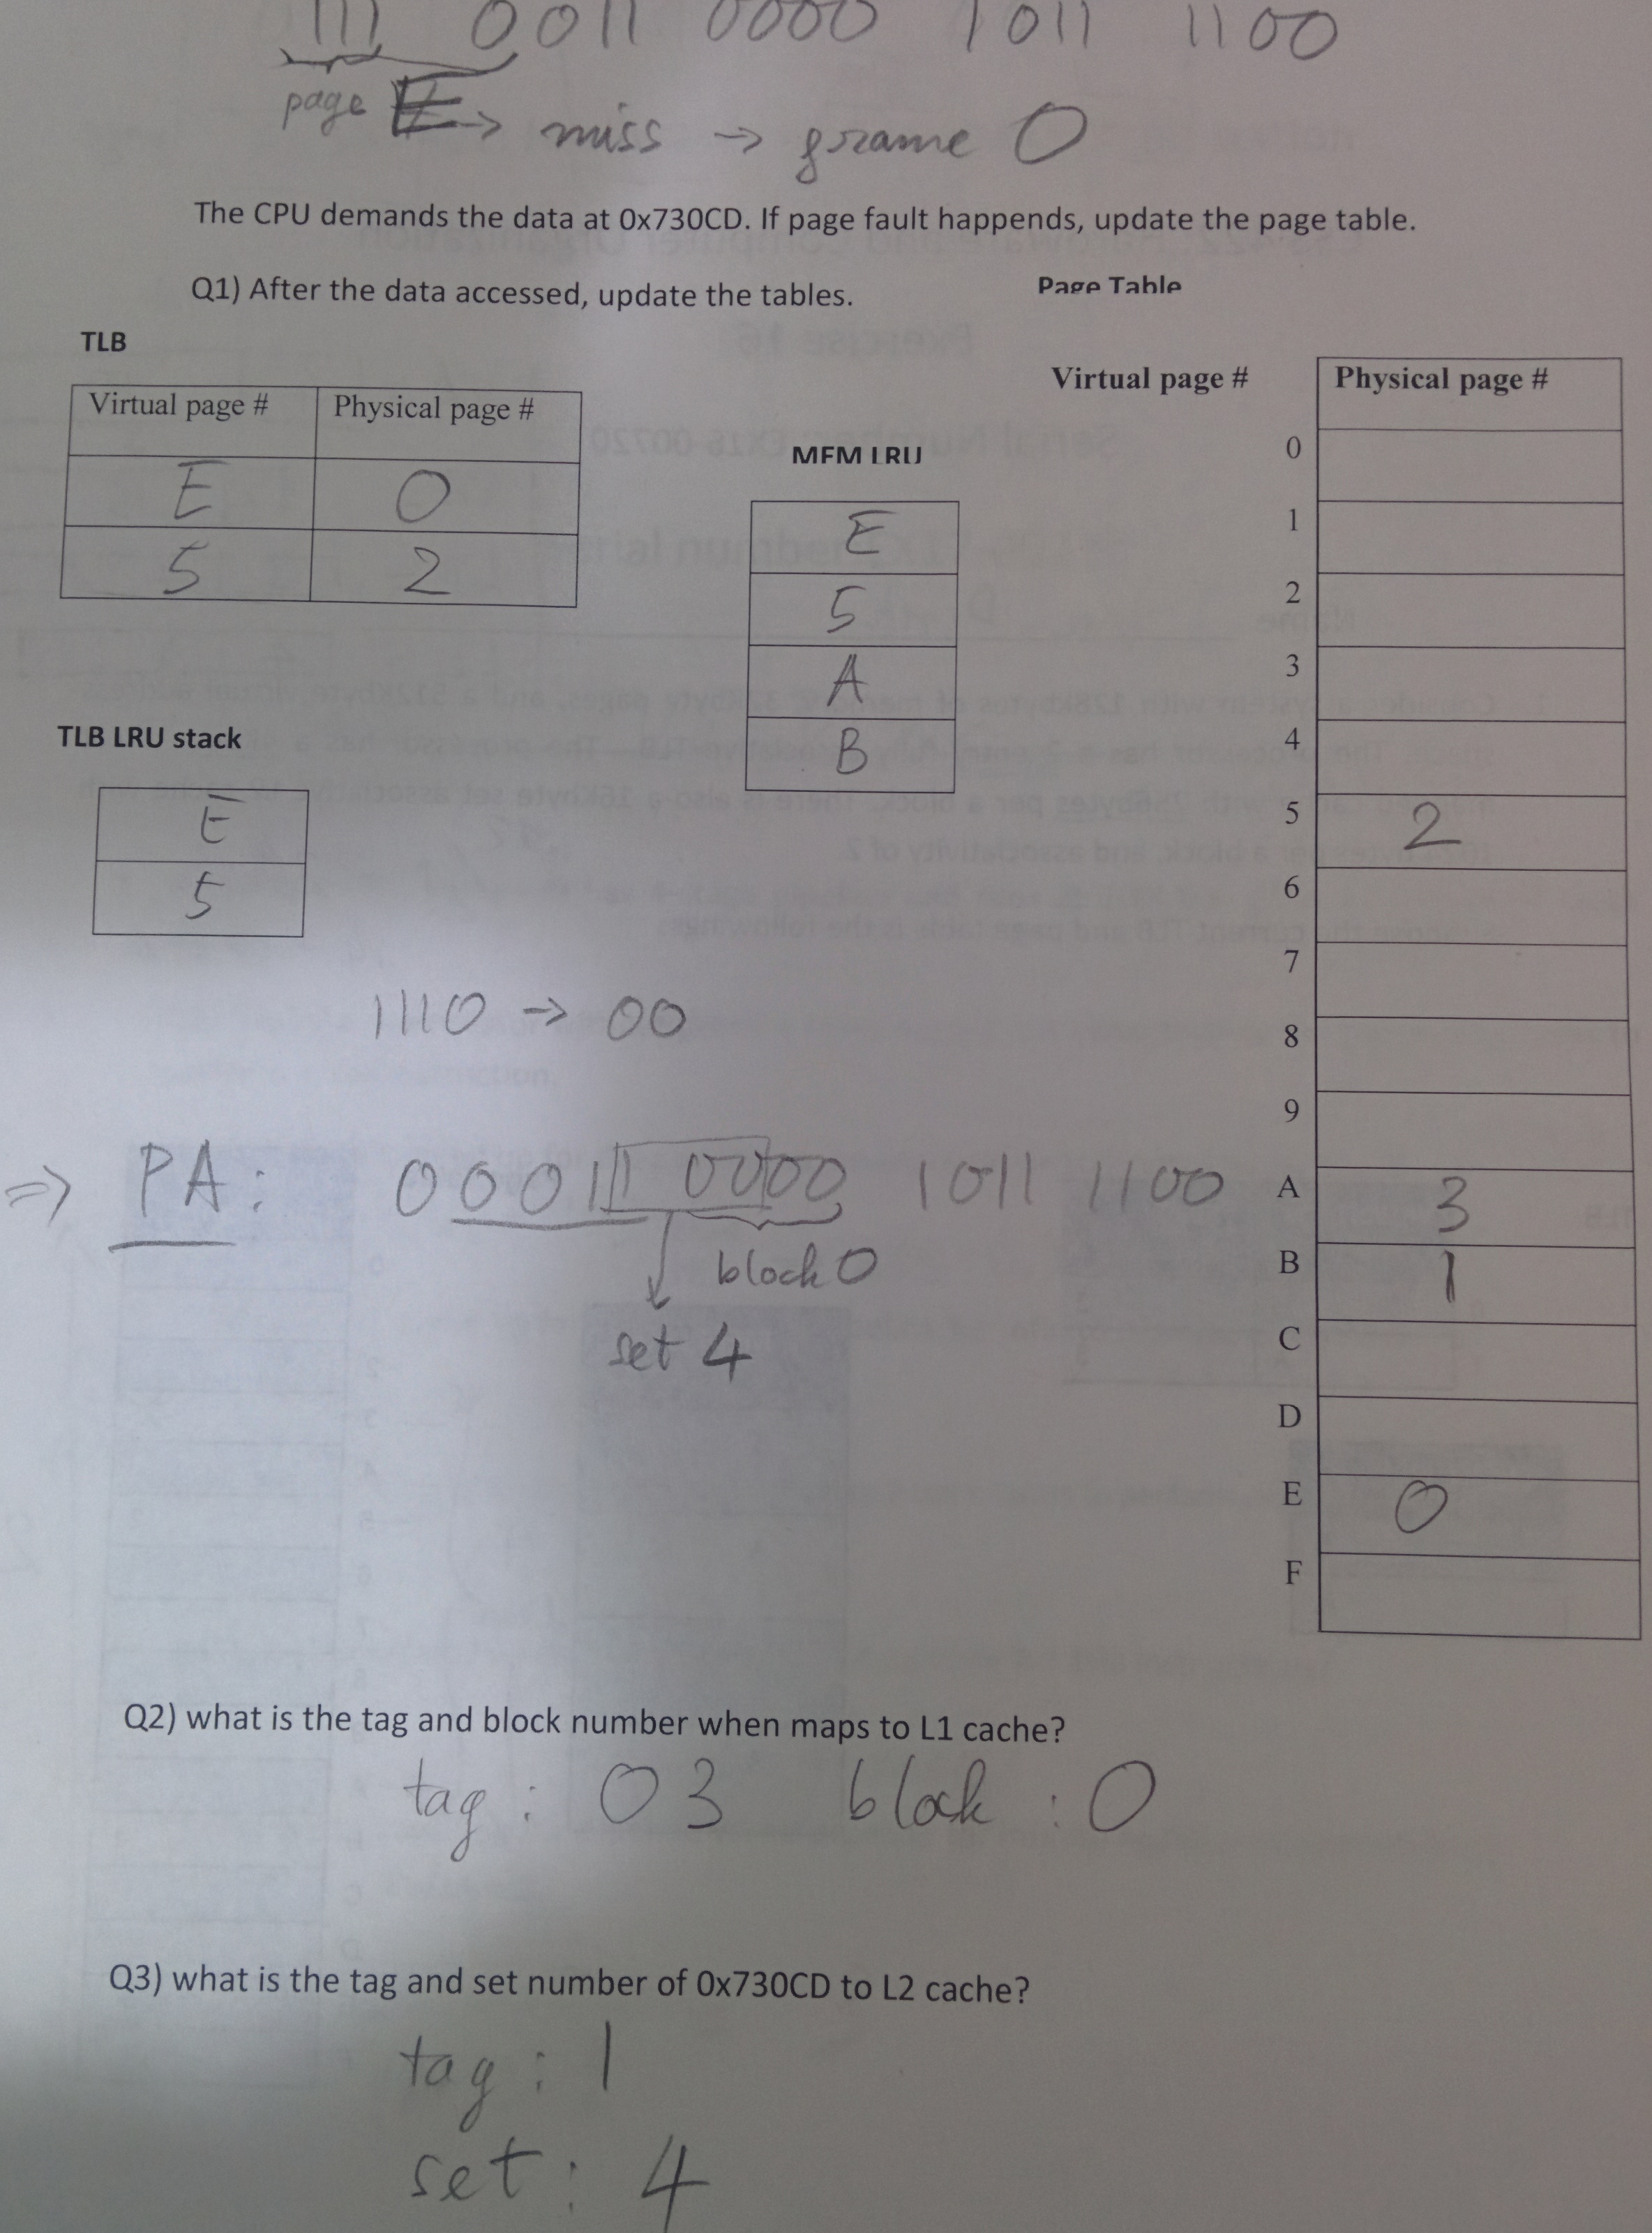 111 0011 0000 1011 1100
page E -> miss -> frame 0
The CPU demands the data at 0x730CD. If page fault happends, update the page table.
Q1) After the data accessed, update the tables.
Page Table
TLB
Virtual page # Physical page #
E 0
5 2
MEM LRU
E
5
A
B
TLB LRU stack
E
5
Virtual page # Physical page #
0
1
2
3
4
5 2
6
7
8
9
A 3
B 1
C
D
E 0
F
1110 -> 00
=> PA: 000111 0000 1011 1100
block 0
set 4
Q2) what is the tag and block number when maps to L1 cache?
tag : 03 block : 0
Q3) what is the tag and set number of 0x730CD to L2 cache?
tag : 1
set : 4